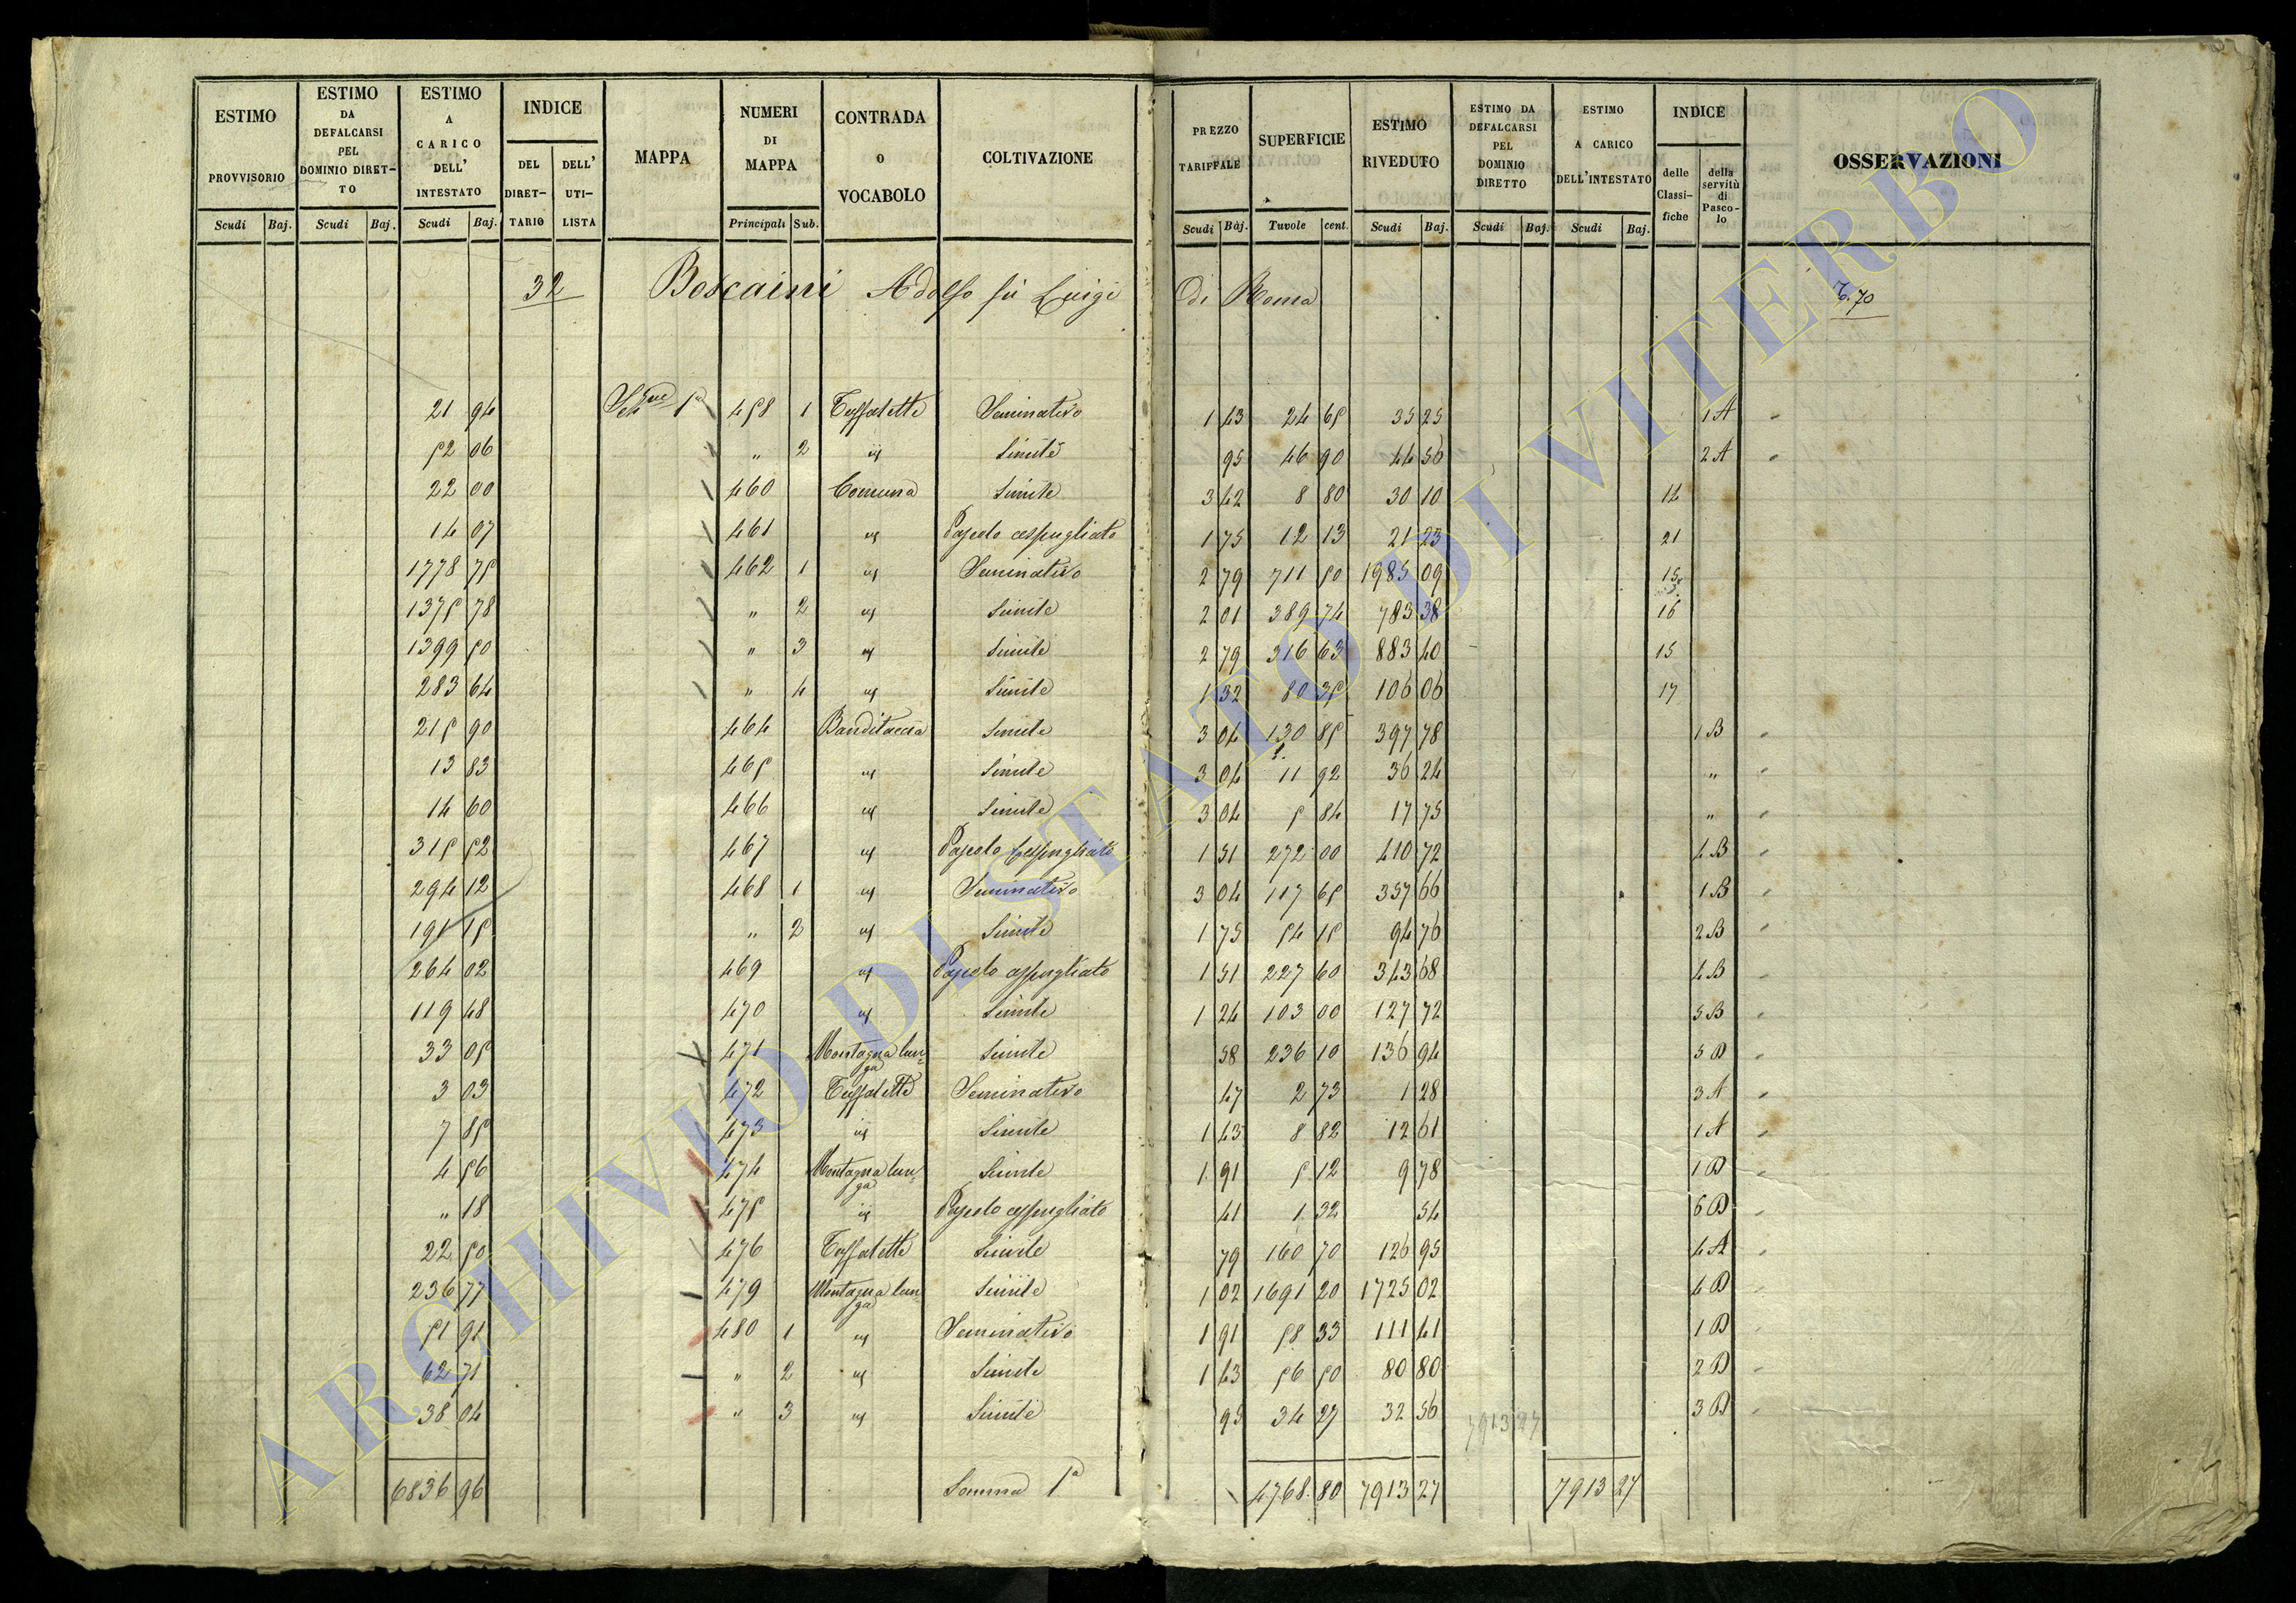 ESTIMO PROVVISORIO | ESTIMO DA DEFALCARSI PEL DOMINIO DIRETTO | ESTIMO A CARICO DELL' INTESTATO | INDICE | MAPPA | NUMERI DI MAPPA | CONTRADA O VOCABOLO | COLTIVAZIONE | PREZZO TARIFFALE | SUPERFICIE | ESTIMO RIVEDUTO | ESTIMO DA DEFALCARSI PEL DOMINIO DIRETTO | ESTIMO A CARICO DELL'INTESTATO | INDICE | OSSERVAZIONI
Scudi | Baj. | Scudi | Baj. | Scudi | Baj. | DEL DIRETTARIO | DELL' UTILISTA | Principali | Sub. | Scudi | Baj. | Tavole | cent. | Scudi | Baj. | Scudi | Baj. | Scudi | Baj. | delle Classifiche | della servitù di Pascolo
32 Boscaini Adolfo fu Luigi Di Roma 70
21 94 | 1a | 458 | 1 | Tuffatette | Seminativo | 1 43 | 24 65 | 35 25 | 1A
52 06 | " | 2 | id | Simile | 95 | 46 90 | 44 56 | 2A
22 00 | 460 | Comuna | Simile | 3 42 | 8 80 | 30 10 | 14
14 07 | 461 | id | Pascolo cespugliato | 1 75 | 12 13 | 21 23 | 21
1778 75 | 462 | 1 | id | Seminativo | 2 79 | 711 50 | 1985 09 | 15
1375 78 | " | 2 | id | Simile | 2 01 | 389 74 | 783 38 | 16
1399 50 | " | 3 | id | Simile | 2 79 | 316 63 | 883 40 | 15
283 64 | " | 4 | id | Simile | 1 32 | 80 35 | 106 06 | 17
215 90 | 464 | Banditaccia | Simile | 3 04 | 130 85 | 397 78 | 1B
13 83 | 465 | id | Simile | 3 04 | 11 92 | 36 24 | "
14 60 | 466 | id | Simile | 3 04 | 5 84 | 17 75 | "
315 52 | 467 | id | Pascolo Cespugliato | 1 51 | 272 00 | 410 72 | 4B
294 12 | 468 | 1 | id | Seminativo | 3 04 | 117 65 | 357 66 | 1B
191 15 | " | 2 | id | Simile | 1 75 | 54 15 | 94 76 | 2B
264 02 | 469 | id | Pascolo cespugliato | 1 51 | 227 60 | 343 68 | 4B
119 48 | 470 | id | Simile | 1 24 | 103 00 | 127 72 | 5B
33 05 | 471 | Montagna lunga | Simile | 58 | 236 10 | 136 94 | 5D
3 03 | 472 | Tuffatette | Seminativo | 47 | 2 73 | 1 28 | 3A
7 85 | 473 | id | Simile | 1 43 | 8 82 | 12 61 | 1A
4 56 | 474 | Montagna lunga | Simile | 1 91 | 5 12 | 9 78 | 1D
" 18 | 475 | id | Pascolo cespugliato | 41 | 1 32 | 54 | 6D
22 50 | 476 | Tuffatette | Simile | 79 | 160 70 | 126 95 | 4A
236 77 | 479 | Montagna lunga | Simile | 1 02 | 1691 20 | 1725 02 | 4D
51 91 | 480 | 1 | id | Seminativo | 1 91 | 58 33 | 111 41 | 1D
62 71 | " | 2 | id | Simile | 1 43 | 56 50 | 80 80 | 2D
38 04 | " | 3 | id | Simile | 95 | 34 27 | 32 56 | 7913 27 | 3D
6836 96 | Somma 1a | 4768 80 | 7913 27 | 7913 27
ARCHIVIO DI STATO DI VITERBO